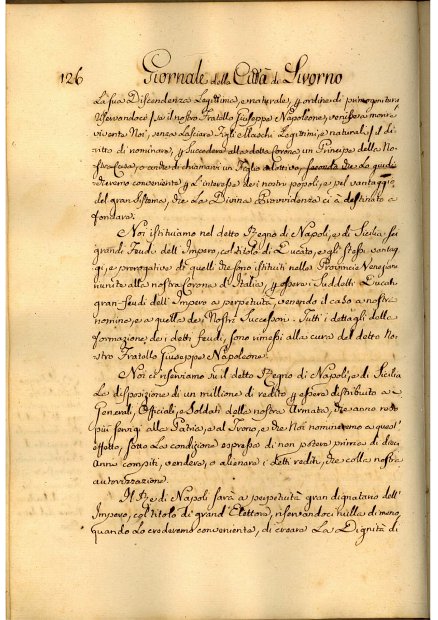 126 Giornale della Città di Livorno
La sua Discendenza Legittima, e naturale, per ordine di primogenitura
riservandoci, se il nostro Fratello Giuseppe Napoleone, venisse a morire
vivente Noi, senza Lasciare Figli Maschi Legittimi, e naturali, il di-
ritto di nominare, per succedere alla detta Corona, un Principe della No-
stra Casa, o anche di chiamarvi un Figlio adottivo, secondo che Lo giudi-
cheremo conveniente per L'interesse dei nostri popoli, e pel vantaggio
del gran Sistema, che La Divina Provvidenza ci à destinato a
fondare.
Noi istituiamo nel detto Regno di Napoli, e di Sicilia sei
grandi Feudi dell'Impero, col titolo di Ducato, e gli stessi vantag-
gi, e prerogative di quelli che sono istituiti nelle Provincie Venesiane
riunite alla nostra Corona d'Italia, per essere i suddetti Ducati
gran-feudi dell'Impero a perpetuità, venendo il caso a nostra
nomina, e a quella de' Nostri Successori. Tutti i dettagli della
formazione dei detti feudi, sono rimessi alla cura del detto No-
stro Fratello Giuseppe Napoleone.
Noi ci riserviamo sul detto Regno di Napoli, e di Sicilia
La disposizione di un millione di redito per essere distribuito ai
Generali, Officiali, e Soldati della nostra Armata, che anno reso
più servigi alla Patria, e al Trono, e che Noi nomineremo a quest'
effetto, sotto La condizione espressa di non potere prima di dieci
Anni compiti, vendere, o alienare i detti rediti, che colla nostra
autorizzazione.
Il Re di Napoli sarà a perpetuità gran dignatario dell'
Impero, col titolo di grand'Elettore, riservandoci nulla di meno,
quando Lo crederemo conveniente, di creare La Dignità di